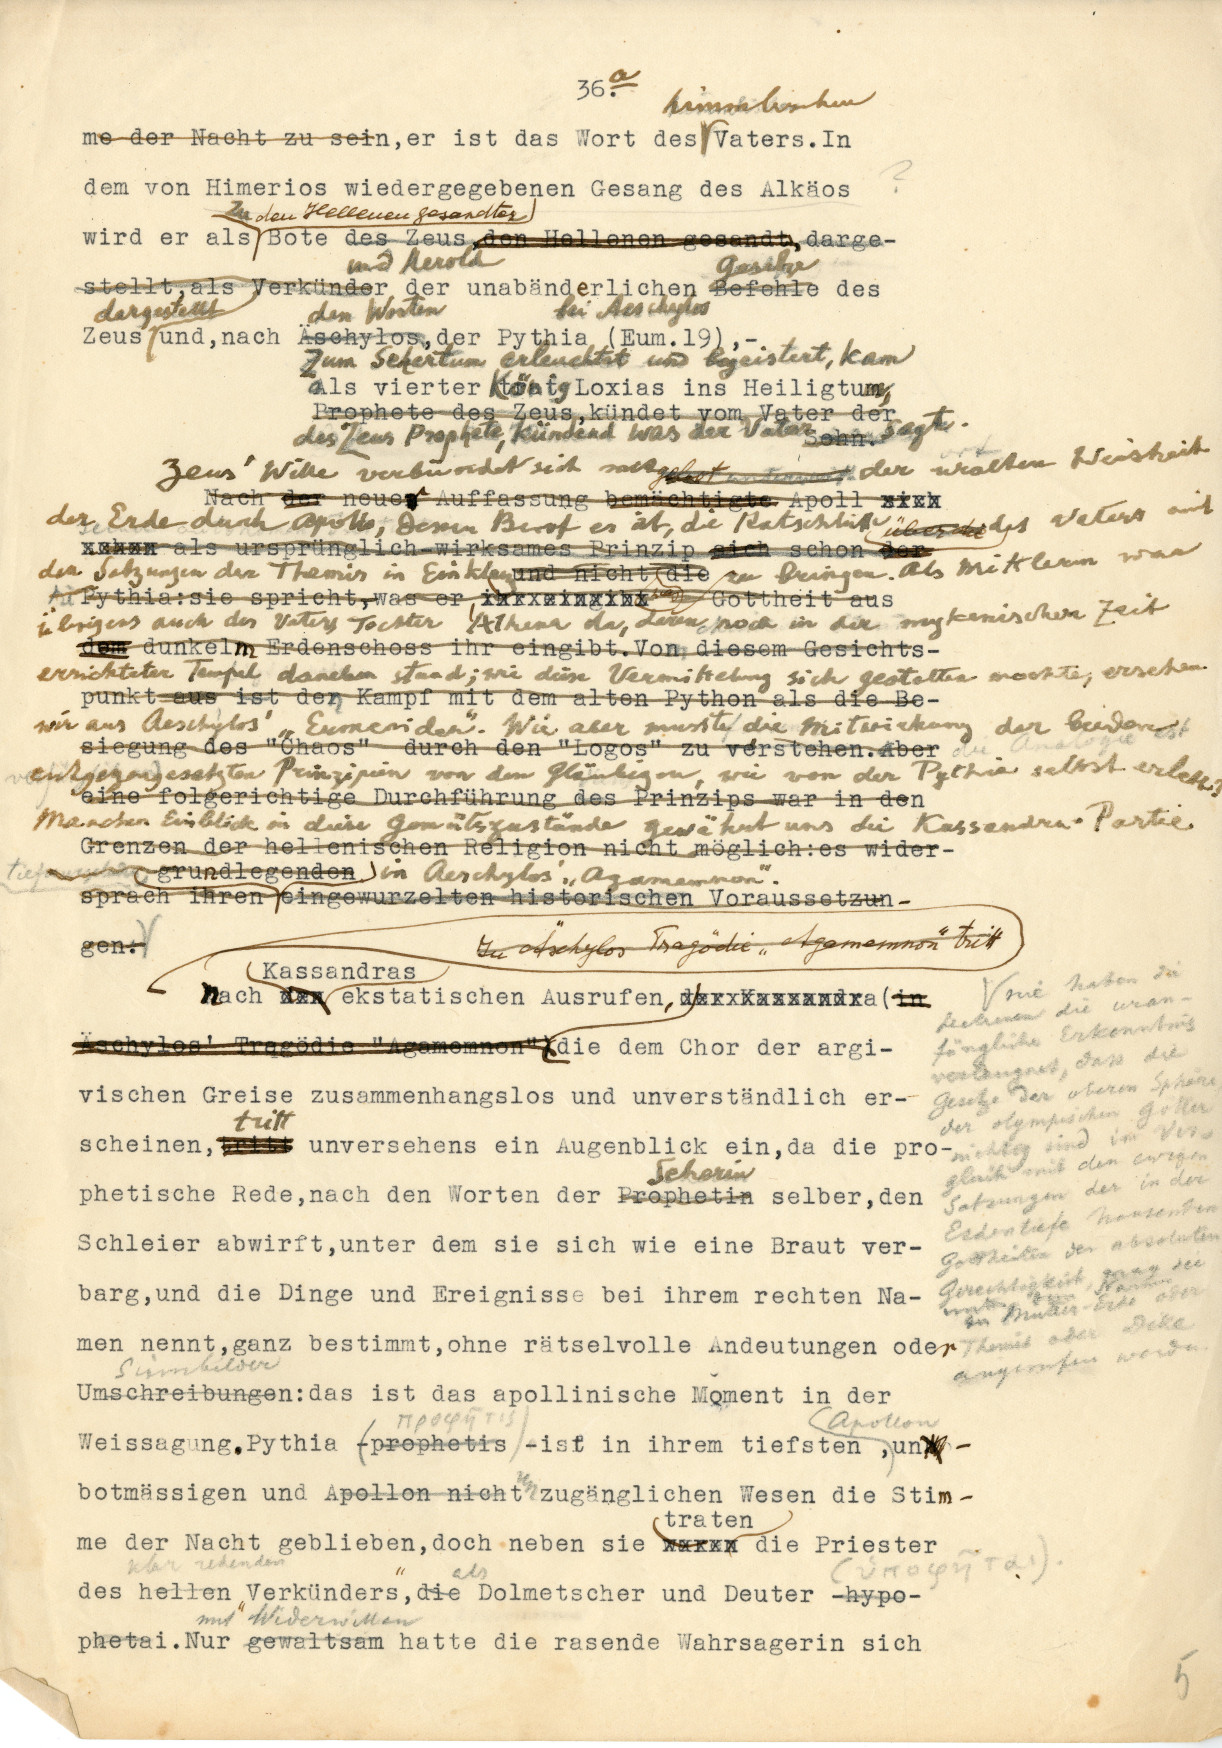 36.a
himmlischen
me der Nacht zu sein,er ist das Wort des Vaters.In
dem von Himerios wiedergegebenen Gesang des Alkäos ?
zu den Hellenen gesandter
wird er als Bote des Zeus,den Hellenen gesandt,darge-
und Herold Gesetze
stellt,als Verkünder der unabänderlichen Befehle des
dargestellt den Worten bei Aeschylos
Zeus und,nach Äschylos,der Pythia (Eum.19),-
Zum Sehertum erleuchtet und begeistert, kam
Als vierter König Loxias ins Heiligtum,
Prophete des Zeus,kündet vom Vater der
des Zeus Prophete, kündend was der Vater sagt.
Sohn.
Zeus' Wille verbündet sich mit der uralten Weisheit
Nach der neuer Auffassung bemächtigte Apoll xixx
der Erde durch Apollo, dessen Beruf es ist, die Ratschlüsse des Vaters mit
xxxxx als ursprünglich-wirksames Prinzip sich schon der
den Satzungen der Themis in Einklang zu bringen. Als Mittlerin war
und nicht die
Pythia:sie spricht,was er, Gottheit aus
übrigens auch des Vaters Tochter Athena da, deren noch in der mykenischen Zeit
dem dunkelm Erdenschoss ihr eingibt.Von diesem Gesichts-
errichteter Tempel daneben stand; wie diese Vermittelung sich gestalten mochte, ersehen
punkt aus ist der Kampf mit dem alten Python als die Be-
wir aus Aeschylos' „Eumeniden". Wie aber musste die Mitwirkung der beiden
siegung des "Chaos" durch den "Logos" zu verstehen.Aber
entgegengesetzten Prinzipien von den Gläubigen, wie von der Pythia selbst erlebt
eine folgerichtige Durchführung des Prinzips war in den
Manchen Einblick in diese Gemütszustände gewährt uns die Kassandra-Partie
Grenzen der hellenischen Religion nicht möglich:es wider-
grundlegenden in Aeschylos' „Agamemnon".
sprach ihren eingewurzelten historischen Voraussetzun-
gen.
In Äschylos Tragödie „Agamemnon" tritt
Kassandras
Nach den ekstatischen Ausrufen,der Kassandra(in
Äschylos' Tragödie "Agamemnon")die dem Chor der argi-
vischen Greise zusammenhangslos und unverständlich er-
tritt
scheinen,tritt unversehens ein Augenblick ein,da die pro-
Seherin
phetische Rede,nach den Worten der Prophetin selber,den
Schleier abwirft,unter dem sie sich wie eine Braut ver-
barg,und die Dinge und Ereignisse bei ihrem rechten Na-
men nennt,ganz bestimmt,ohne rätselvolle Andeutungen oder
Sinnbilder
Umschreibungen:das ist das apollinische Moment in der
προφῆτις Apollon
Weissagung.Pythia -prophetis -ist in ihrem tiefsten ,un-
botmässigen und Apollon nicht zugänglichen Wesen die Stim-
traten
me der Nacht geblieben,doch neben sie waren die Priester
klar redenden als (ὑποφῆται).
des hellen Verkünders",die Dolmetscher und Deuter -hypo-
mit Widerwillen
phetai.Nur gewaltsam hatte die rasende Wahrsagerin sich
wie haben die
Hellenen die uran-
fängliche Erkenntnis
verleugnet, dass die
Gesetze der oberen Sphäre,
der olympischen Götter
nichtig sind im Ver-
gleich mit den ewigen
Satzungen der in der
Erdentiefe hausenden
Gottheiten der absoluten
Gerechtigkeit, mag sie
unter dem Namen
der Mutter-Erde oder
Themis oder Dike
angerufen werden.
5